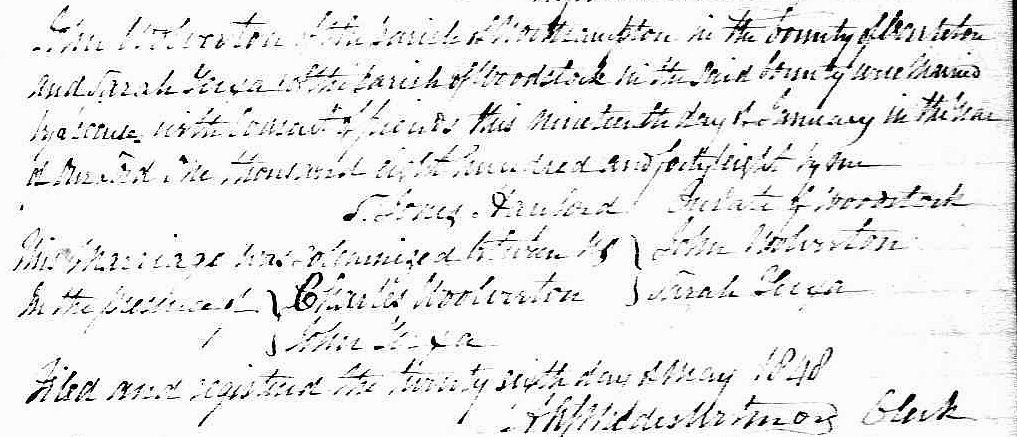 John Wolverton of the Parish of Northampton in the County of Carleton
and Sarah of the Parish of Woodstock in the said County were Married
by License with Consent of friends this nineteenth day of January in the Year
of our Lord One thousand eight hundred and forty eight by me
S. Jones Hanford Curate of Woodstock
This Marriage was solemnized between us } John Wolverton
In the presence of } Charles Woolverton } Sarah
} John
Filed and registered the twenty sixth day of May 1848
Clerk